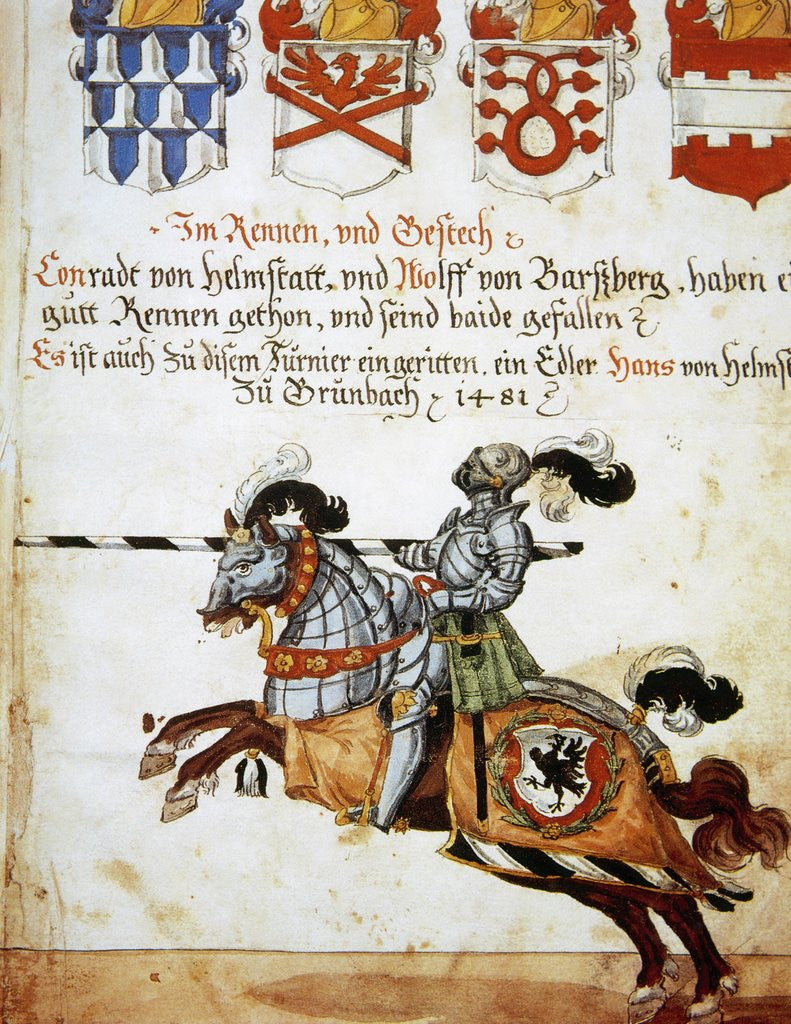 Im Rennen, vnd Gestech
Conradt von Helmstatt, vnd Wolff von Barßberg, haben ei
gutt Rennen gethon, vnd seind baide gefallen
Es ist auch zu disem Turnier ein geritten. ein Edler Hans von Helmst
Zů Grunbach 1481